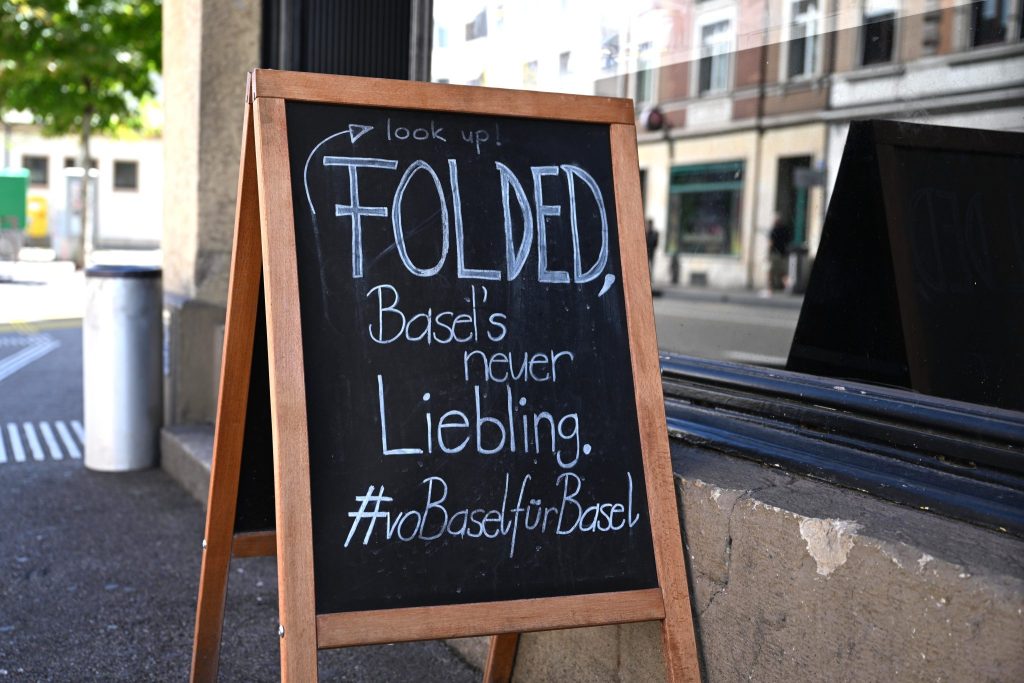 look up!
FOLDED,
Basel's
neuer
Liebling.
#voBaselfürBasel